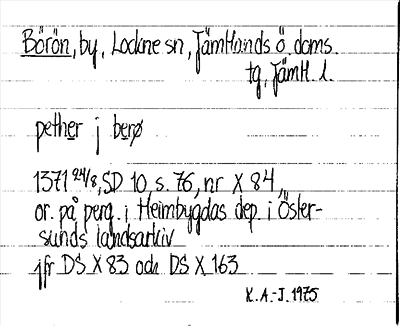 Börön, by, Lockne sn, Jämtlands ö. doms.
tg, Jämtl. l.
pether j berø
1371 24/8, SD 10, s. 76, nr X 84,
or. på perg. i Heimbygdas dep. i Öster-
sunds landsarkiv
jfr DS X 83 och DS X 163
K. A.-J. 1975